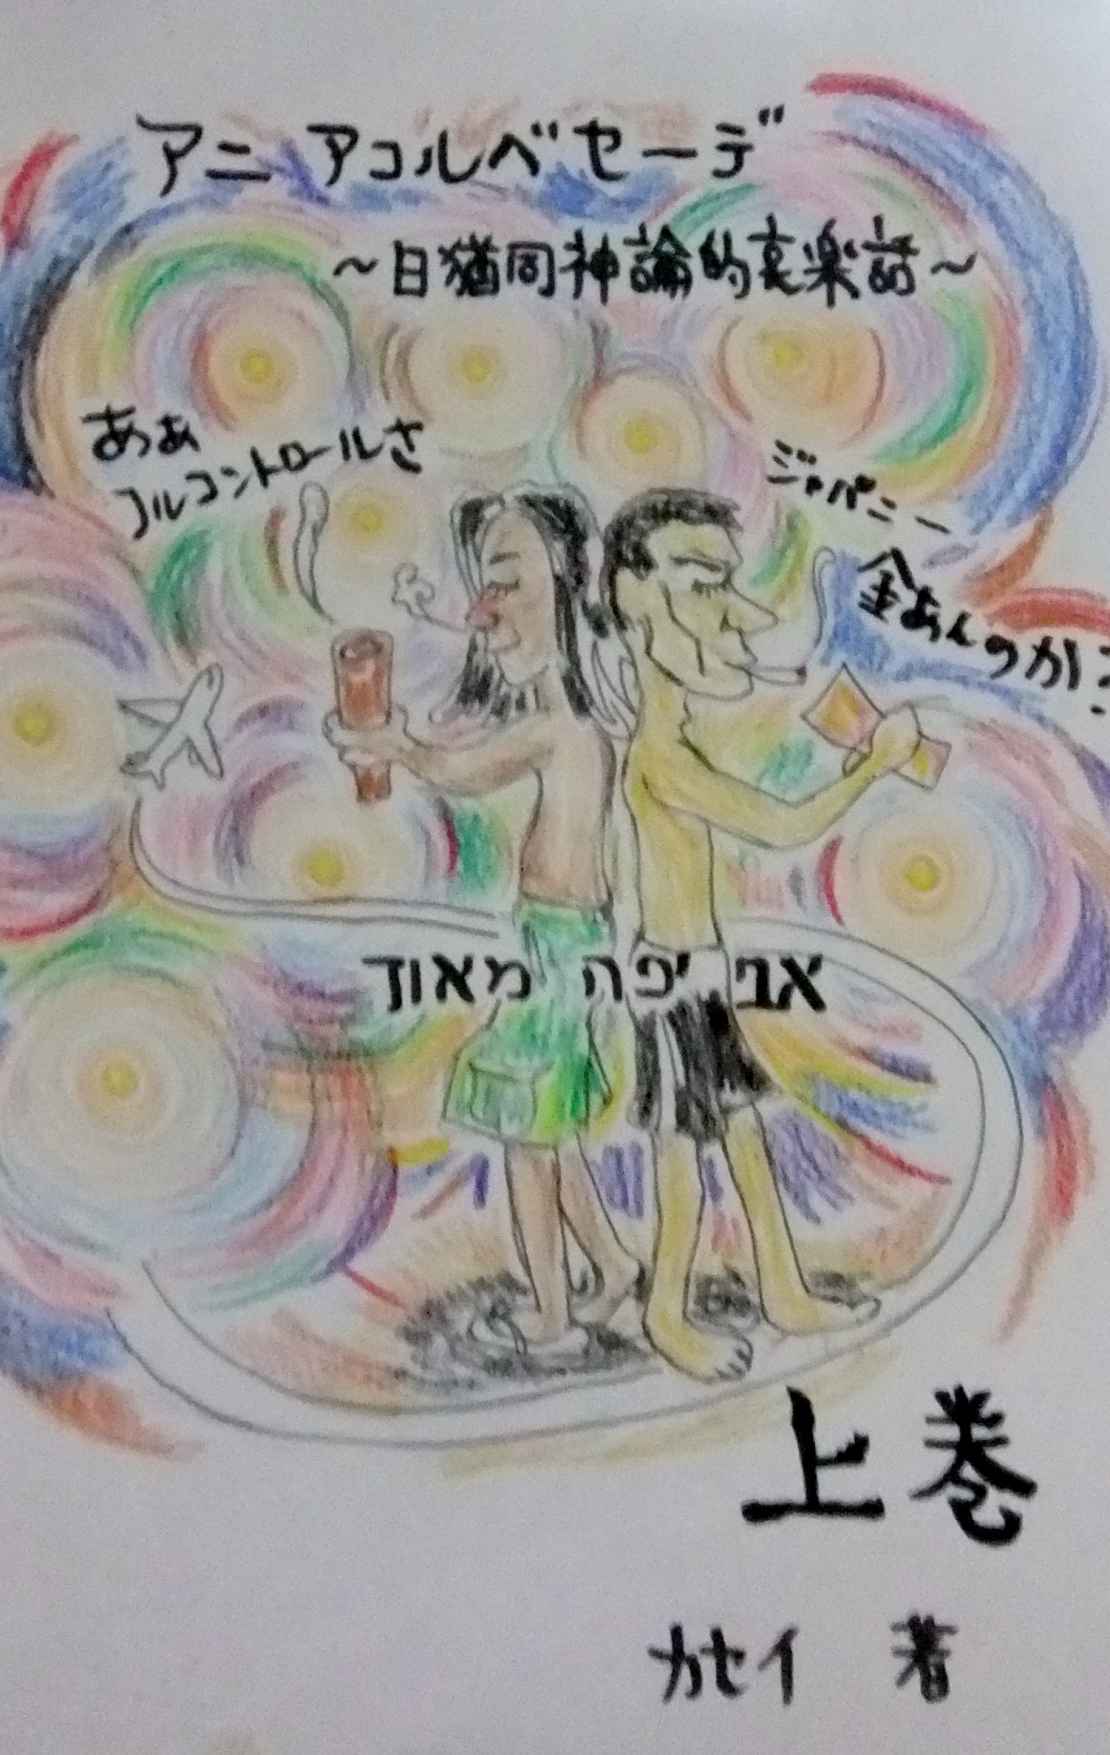 アニ アコルベセーデ
～日猶同神論的哀楽話～
ああ
コルコントロールさ
ジャパニー
金あんのか？
אני יפה מאוד
上巻
カセイ 著